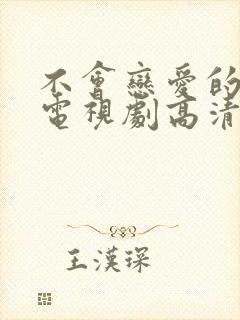 不會戀愛的
電視劇高清
王漢琛